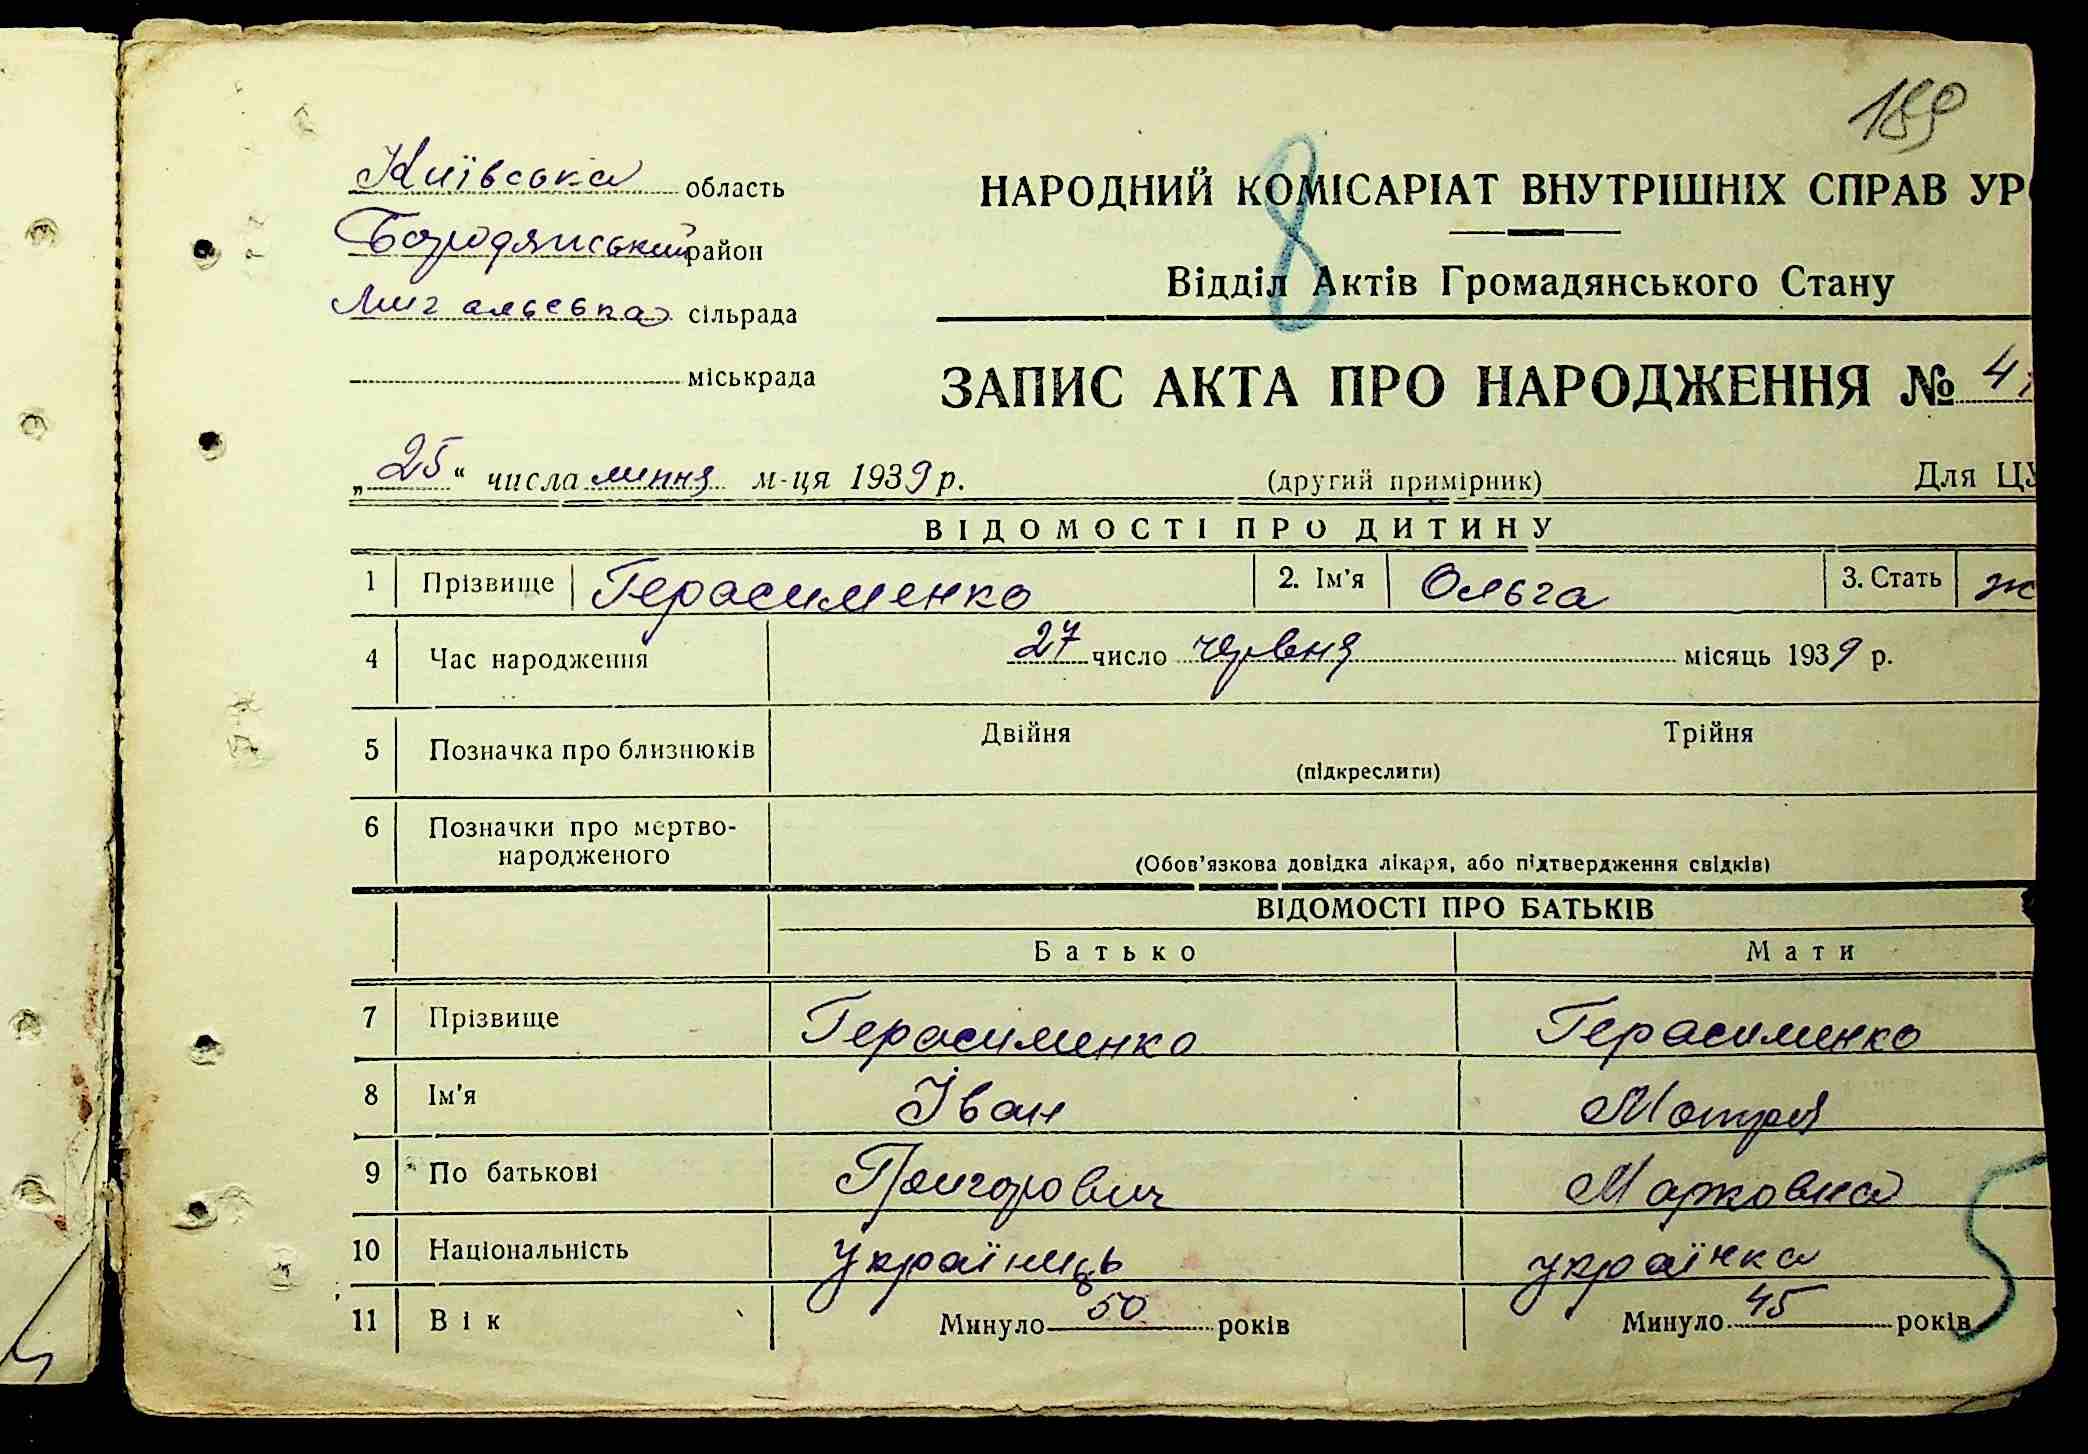 189
Київська область
Бородянський район
Мигальська сільрада
міськрада
8
НАРОДНИЙ КОМІСАРІАТ ВНУТРІШНІХ СПРАВ УР
Відділ Актів Громадянського Стану
ЗАПИС АКТА ПРО НАРОДЖЕННЯ №
„25“ числа липня м-ця 1939 р.
(другий примірник)
Для ЦУ
ВІДОМОСТІ ПРО ДИТИНУ
1 Прізвище Герасименко 2. Ім'я Ольга 3. Стать ж
4 Час народження 27 число червня місяць 1939 р.
5 Позначка про близнюків Двійня Трійня
(підкреслити)
6 Позначки про мертво-
народженого
(Обов'язкова довідка лікаря, або підтвердження свідків)
ВІДОМОСТІ ПРО БАТЬКІВ
Батько Мати
7 Прізвище Герасименко Герасименко
8 Ім'я Іван Мотря
9 По батькові Григорович Марковна
10 Національність українець українка
11 Вік Минуло 50 років Минуло 45 років
5